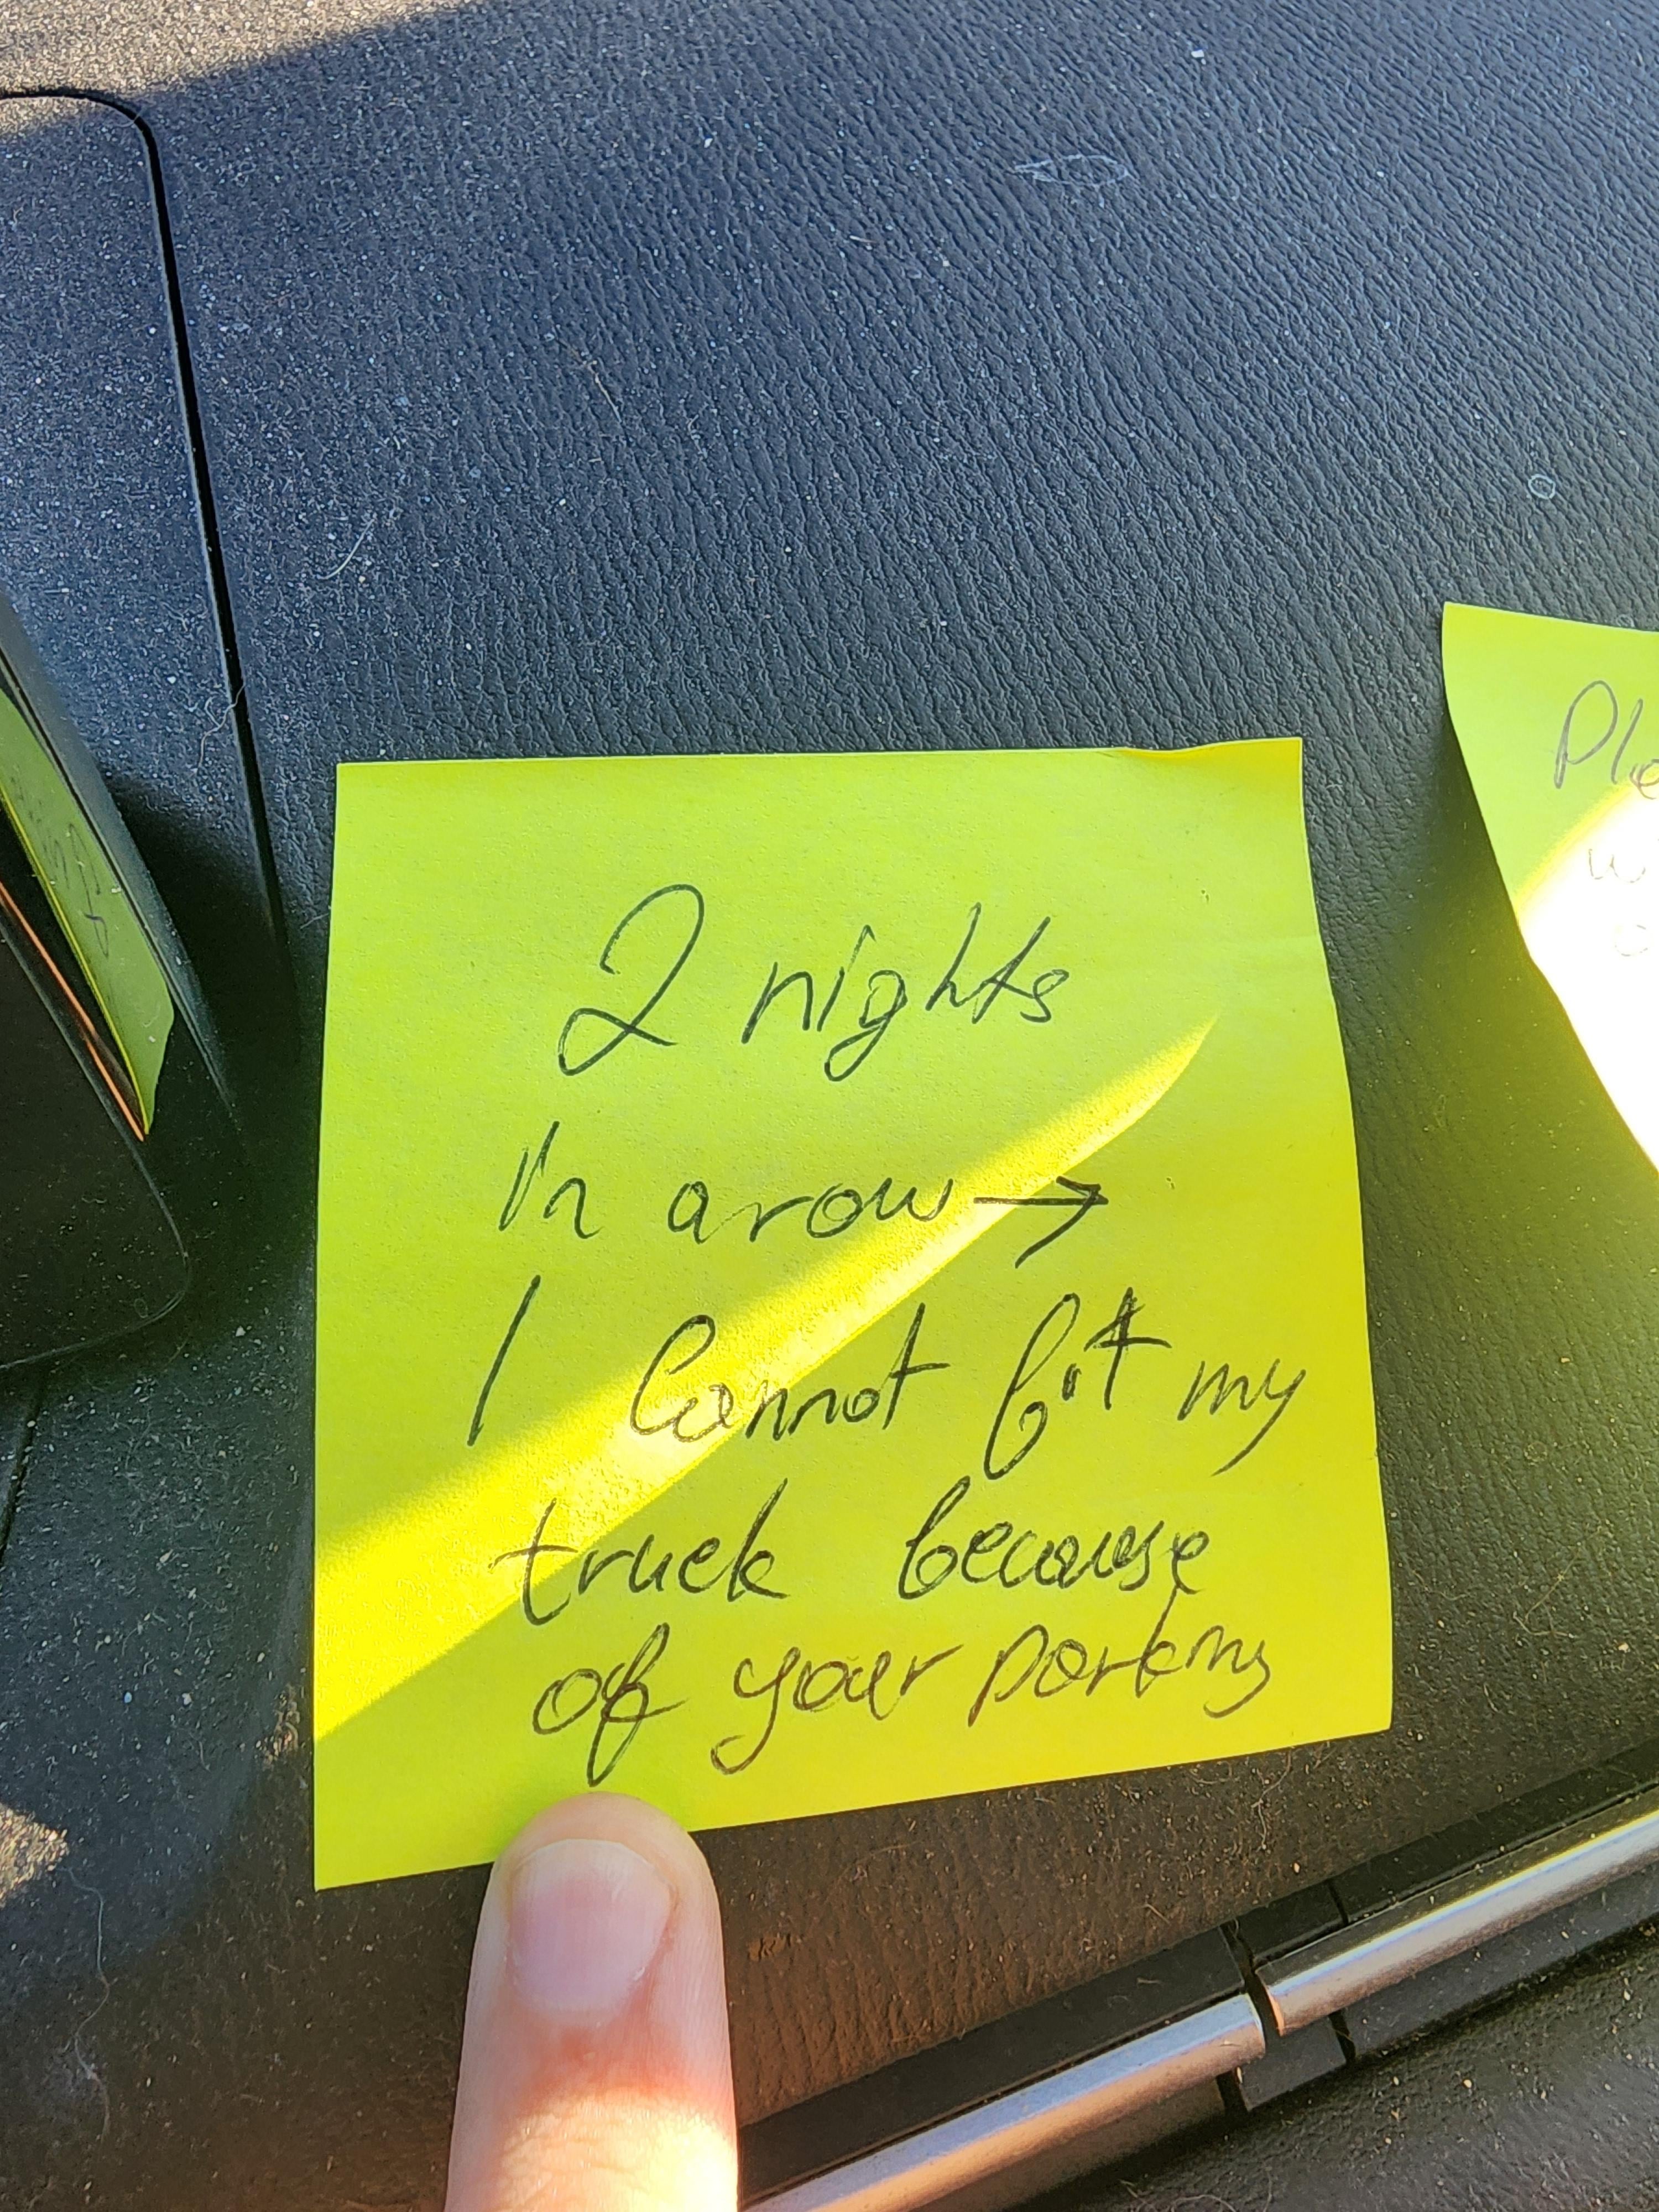 2 nights
In arow →
I Cannot fit my
truck because
of your parking
Ple